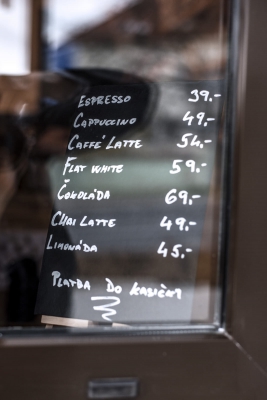 ESPRESSO 39.-
CAPPUCCINO 49.-
CAFFÉ LATTE 54.-
FLAT WHITE 59.-
ČOKOLÁDA 69.-
CHAI LATTE 49.-
LIMONÁDA 45.-
PLATBA DO KASIČKY